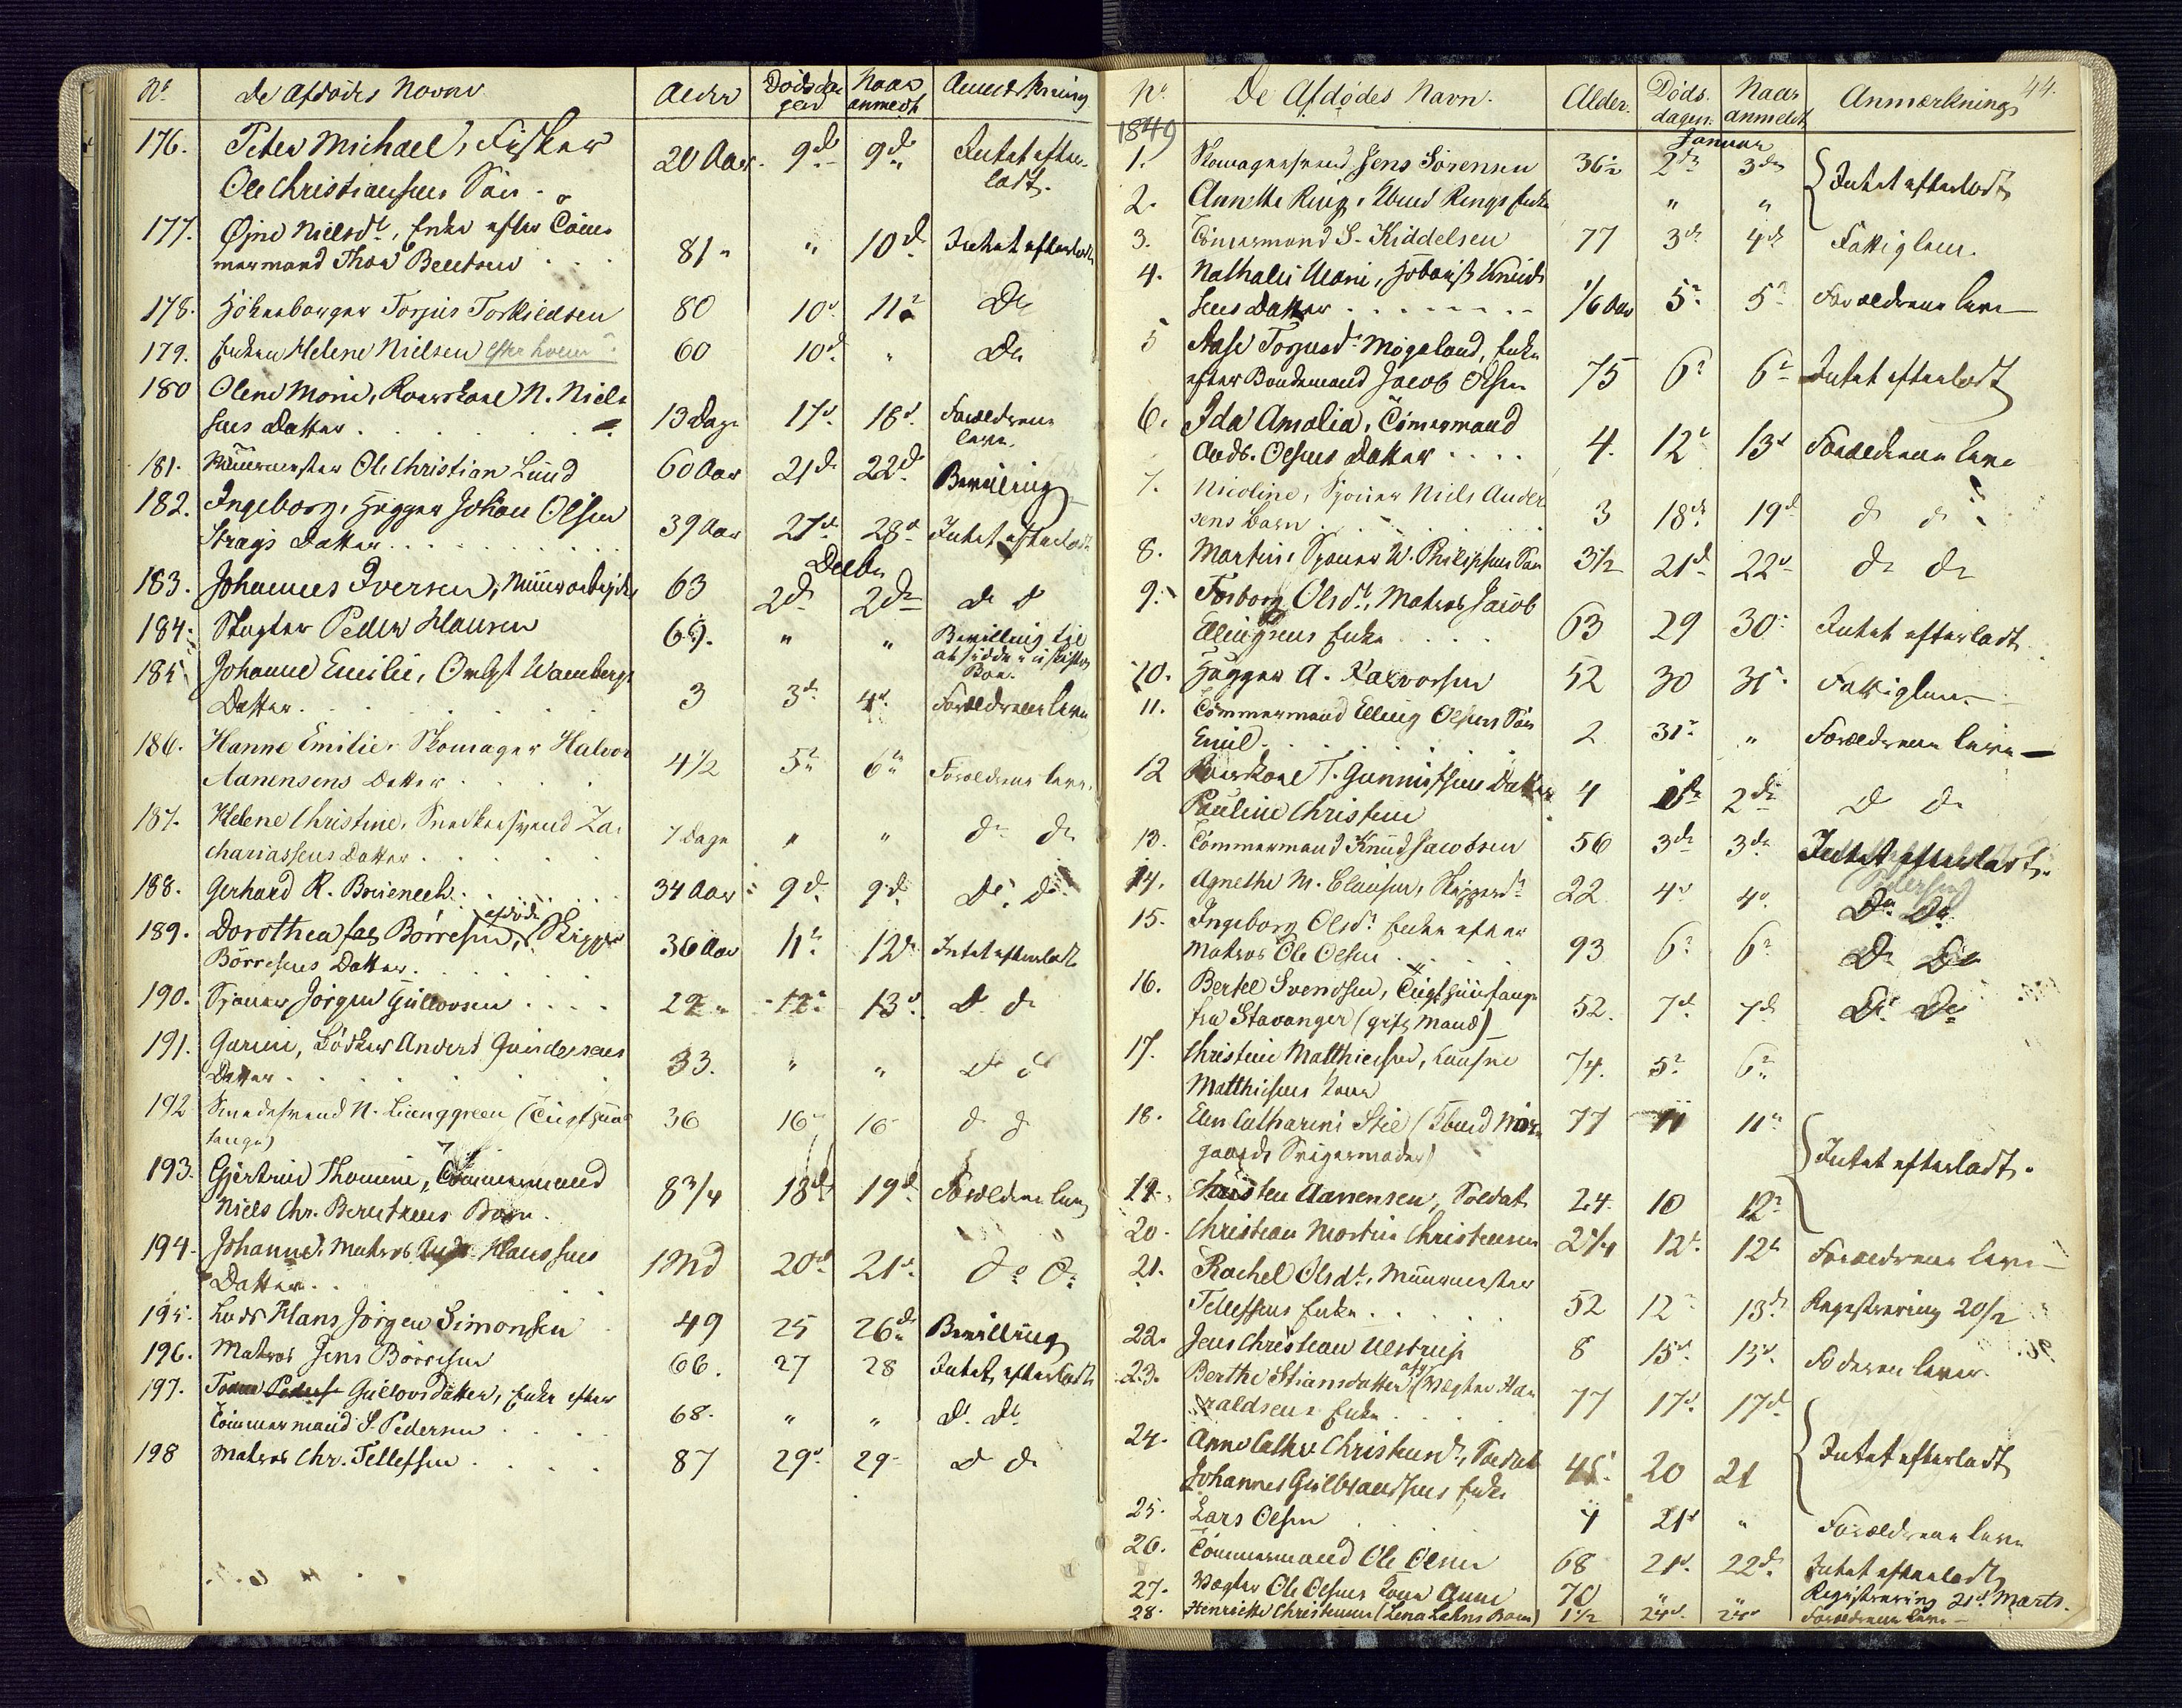 No. De Afdödes Navne Alder Dödsdagen Naar anmeldt Anmerkning
176. Peter Michael, Fisker 20 Aar. 9de 9de Intet efter-
Ole Christiansens Sön. ladt.
177. Gjine Nielsdt, Enke efter Töm-
mermand Thos Beentsen 81 " 10de Intet efterladt
178. Torjus Torkildsen 80 10de 11te Do
179. Enken Helene Nielsen 60 10de " Do
180 Olene Marie, N. Niel-
sens Datter 13 Dage 17de 18de Forældrene
leve.
181. Muurmester Ole Christian Lund 60 Aar 21de 22de Bevilling
182. Ingeborg, Johan Olsen
Strags Datter 39 Aar 27de 28de Intet efterladt
Decbr
183. Johannes Iversen, Muurarbeider 63 2de 2de do do
184. Slagter Peder Hansen 69. " " Bevilling til
at sidde i uskiftet
Boe.
185. Johanne Emilie, Wambergs
Datter 3 3de 4de Forældrene leve
186. Hanne Emilie, Skomager Halvor
Aanensens Datter 4 1/2 5te 6te Forældrene leve.
187. Helene Christine, Snedkersvend Za-
chariassens Datter 7 Dage " " do do
188. Gerhard R. Boisenech 34 Aar 9de 9de Do Do
afdöde
189. Dorothea Börresen, Skipper
Börresens Datter 36 Aar 11te 12te Intet efterladt
190. Sjouer Jörgen Gullovsen 22 12te 13de do do
191. Gurine, Bödker Anders Gundersens
Datter 33. " " do do
192 Smedesvend N. Liunggreen (Tugthuus-
fange) 36 16 16 do do
193. Gjertrud Thomine, Tömmermand
Niels Chr. Berntsens Barn. 8 3/4 18de 19de Forældrene leve
194. Johanne, Matros Hanssens
Datter 1 Md 20de 21de do do
195. Lods Hans Jörgen Simonsen 49 25 26de Bevilling
196. Matros Jens Börresen 66. 27 28 Intet efterladt
197. Gullovsdatter, Enke efter
Tömmermand S. Pedersen 68. " " do do
198 Matros Chr. Tellefsen 87 29de 29 do do
44.
No. De Afdödes Navn. Alder. Döds-dagen. Naar anmeldt Anmerkning
1849 Januar
1. Skomagersvend Jens Sörensen 36 2de 3de Intet efterladt
2. Annethe Ring, Ring Enke " "
3. Tömermand S. Kiddelsen 77 3de 4de Fattiglem.
4. Nathalie Marie, Knud-
sens Datter 1/6 Aar 5te 5te Forældrene leve
5 Aase Torjusdt Mögeland, Enke
efter Bondemand Jacob Olsen 75 6te 6te Intet efterladt
6. Ida Amalia, Tömermand
Andr. Olsens Datter 4. 12te 13de Forældrene leve
7. Nicoline, Sjouer Niels Ander-
sens Barn 3 18de 19de do do
8. Martin, Sjouer W. Philipsens Sön 3 1/2 21de 22de do do
9. Torborg Olsdt, Matros Jacob
Ellingsens Enke 63 29 30 Intet efterladt
10. A. Halvorsen 52 30 31 Fattiglem
11. Tömmermand Elling Olsens Sön
Emil 2 31te " Forældrene leve
12 T. Gunnufsens Datter
Pauline Christine 4 1ste 2de do do
13. Tömmermand Knud Jacobsen 56 3de 3de Intet efterladt.
14. Agnethe M. Clausen, Skipper 22 4de 4de Do Do
15. Ingeborg Olsdt Enke efter
Matros Ole Olsen 93 6te 6te Do Do
16. Bertel Svendsen, Tugthuusfange
fra Stavanger (gift Mand) 52. 7de 7de Do Do
17. Christine Matthiesen,
Matthiesens Kone 74. 5te 6te
18. Elen Catharine Stie (
Svigermoder) 77 11 11te Intet efterladt.
19. Christen Aanensen, Soldat 24 10 12te
20. Christian Martin Christensen 2 1/4 12te 12te Forældrene leve
21. Rachel Olsdt, Muurmester
Tellefsens Enke 52 12te 13de Registrering 20/2
22. Jens Christian Ulstrup 8 15de 15de Faderen lever.
23. Berthe Stiansdatter (Vægter Ha-
raldsens Enke 77 17de 17de Intet efterladt
24. Anne Cathr. Christensdt, Soldat
Johannes Gulbrandsens Enke 45 20 21
25. Lars Olsen 4 21de " Forældrene leve
26. Tömmermand Ole Olsen 68 21de 22de Intet efterladt
27. Vægter Ole Olsens Kone Anne 70 " " Registrering 21de Marts.
28. Henriette Christensen (Lena Lahns Barn) 1 1/2 24de 24de Forældrene leve